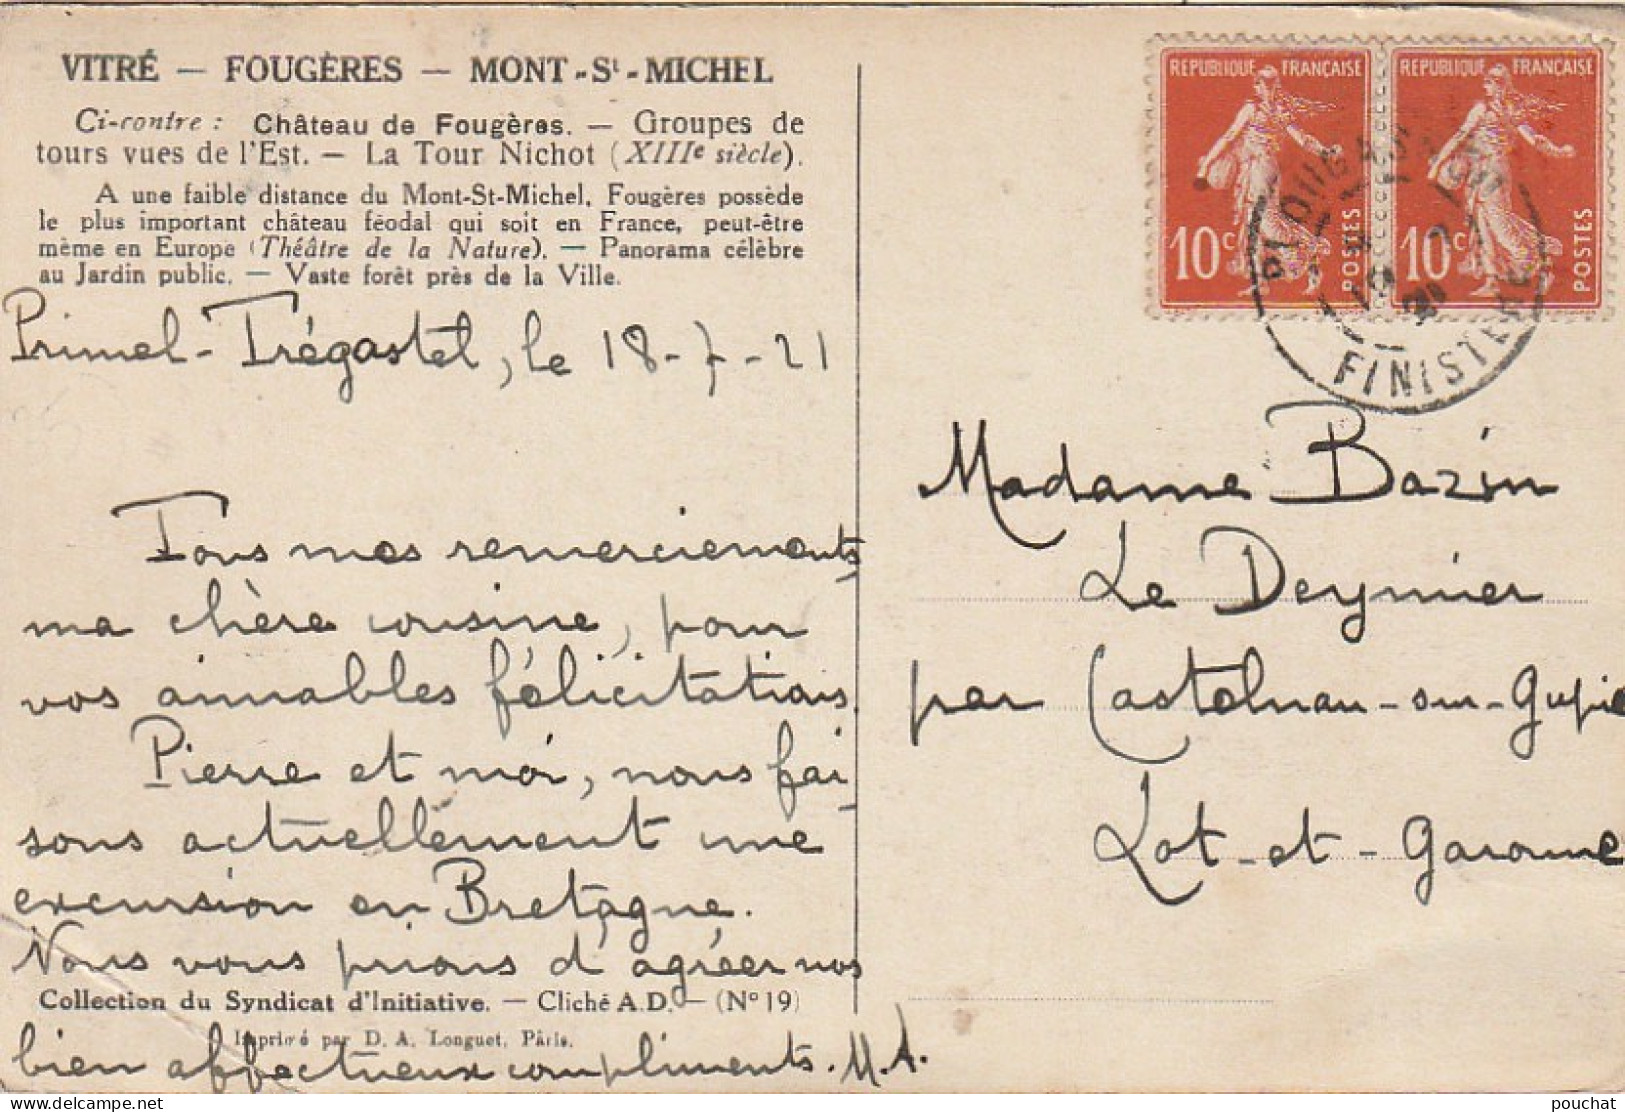 VITRÉ — FOUGÈRES — MONT-St-MICHEL
Ci-contre : Château de Fougères. — Groupes de
tours vues de l'Est. — La Tour Nichot (XIIIe siècle).
A une faible distance du Mont-St-Michel, Fougères possède
le plus important château féodal qui soit en France, peut-être
même en Europe (Théâtre de la Nature). — Panorama célèbre
au Jardin public. — Vaste forêt près de la Ville.
Primel-Trégastel, le 18-7-21
Tous mes remerciements,
ma chère cousine, pour
vos aimables félicitations.
Pierre et moi, nous fai-
sons actuellement une
excursion en Bretagne.
Nous vous prions d'agréer nos
Collection du Syndicat d'Initiative. — Cliché A.D. — (N° 19)
Imprimé par D. A. Longuet, Paris.
bien affectueux compliments. M. A.
REPUBLIQUE FRANÇAISE
10c POSTES
REPUBLIQUE FRANÇAISE
10c POSTES
FINISTERE
Madame Bazin
Le Deymier
par Castelnau-sur-Gupie
Lot-et-Garonne
pouchat